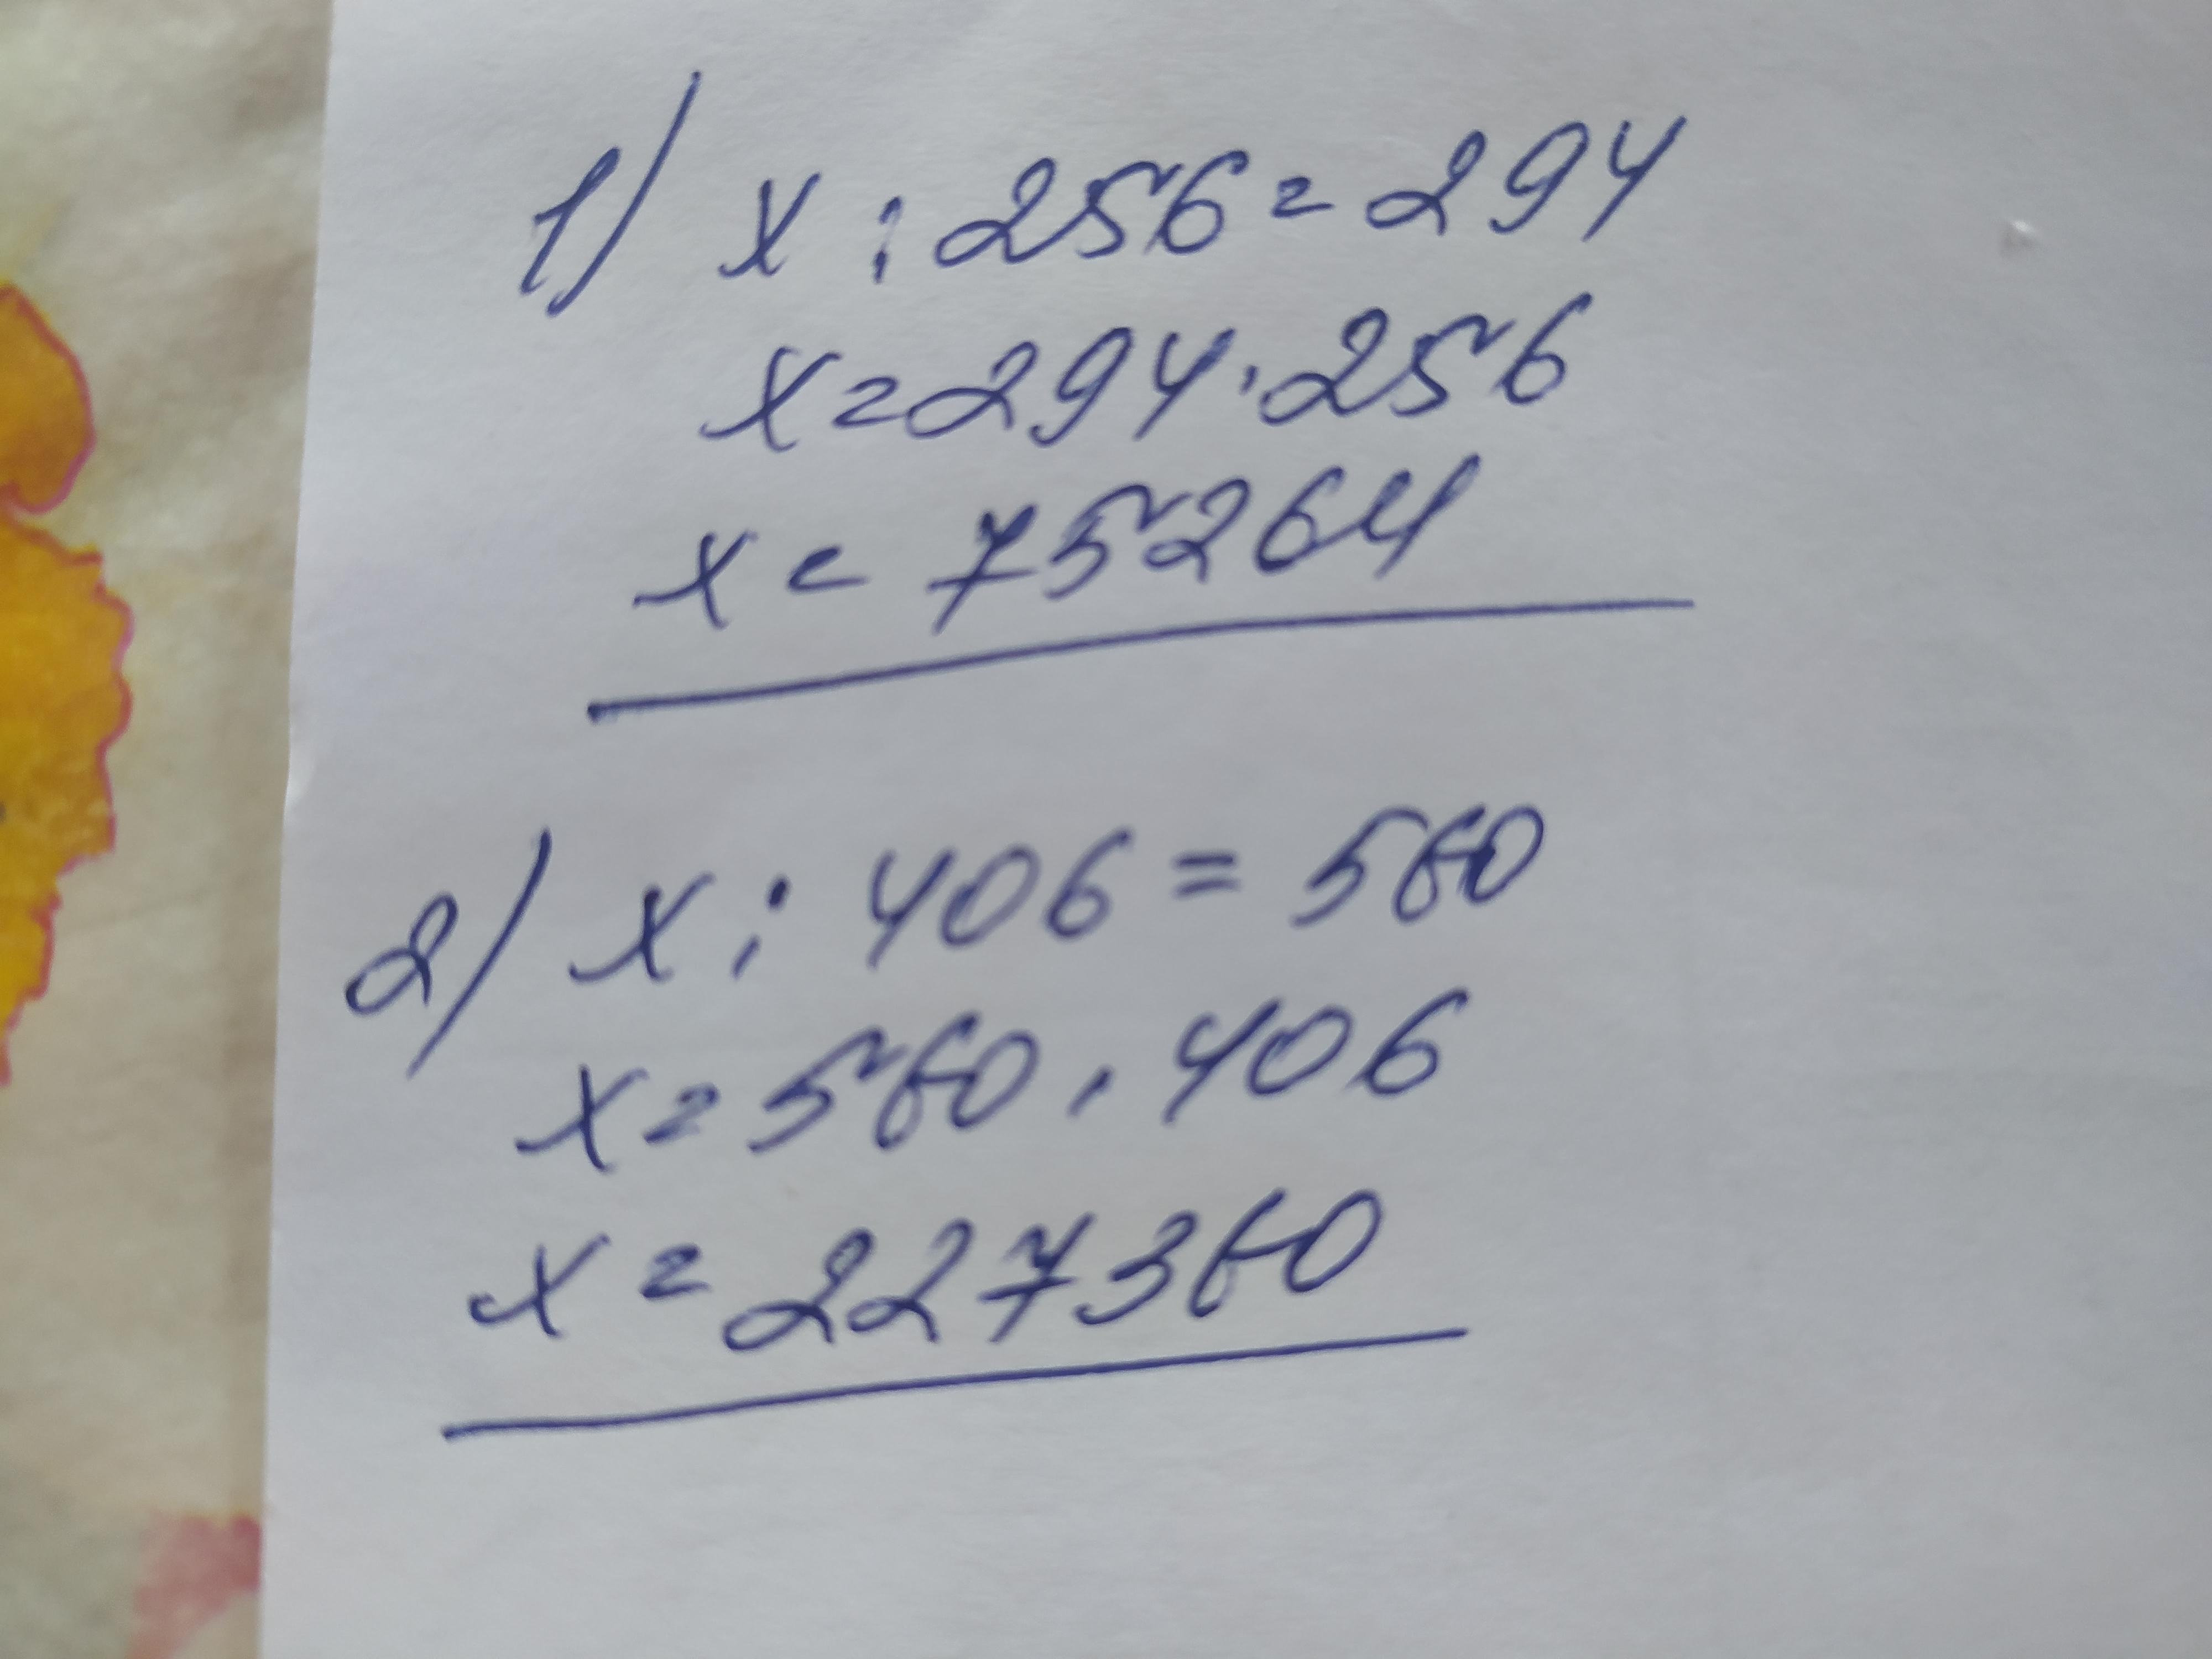 1) x : 256 = 294
x = 294 · 256
x = 75264
2) x : 406 = 560
x = 560 · 406
x = 227360